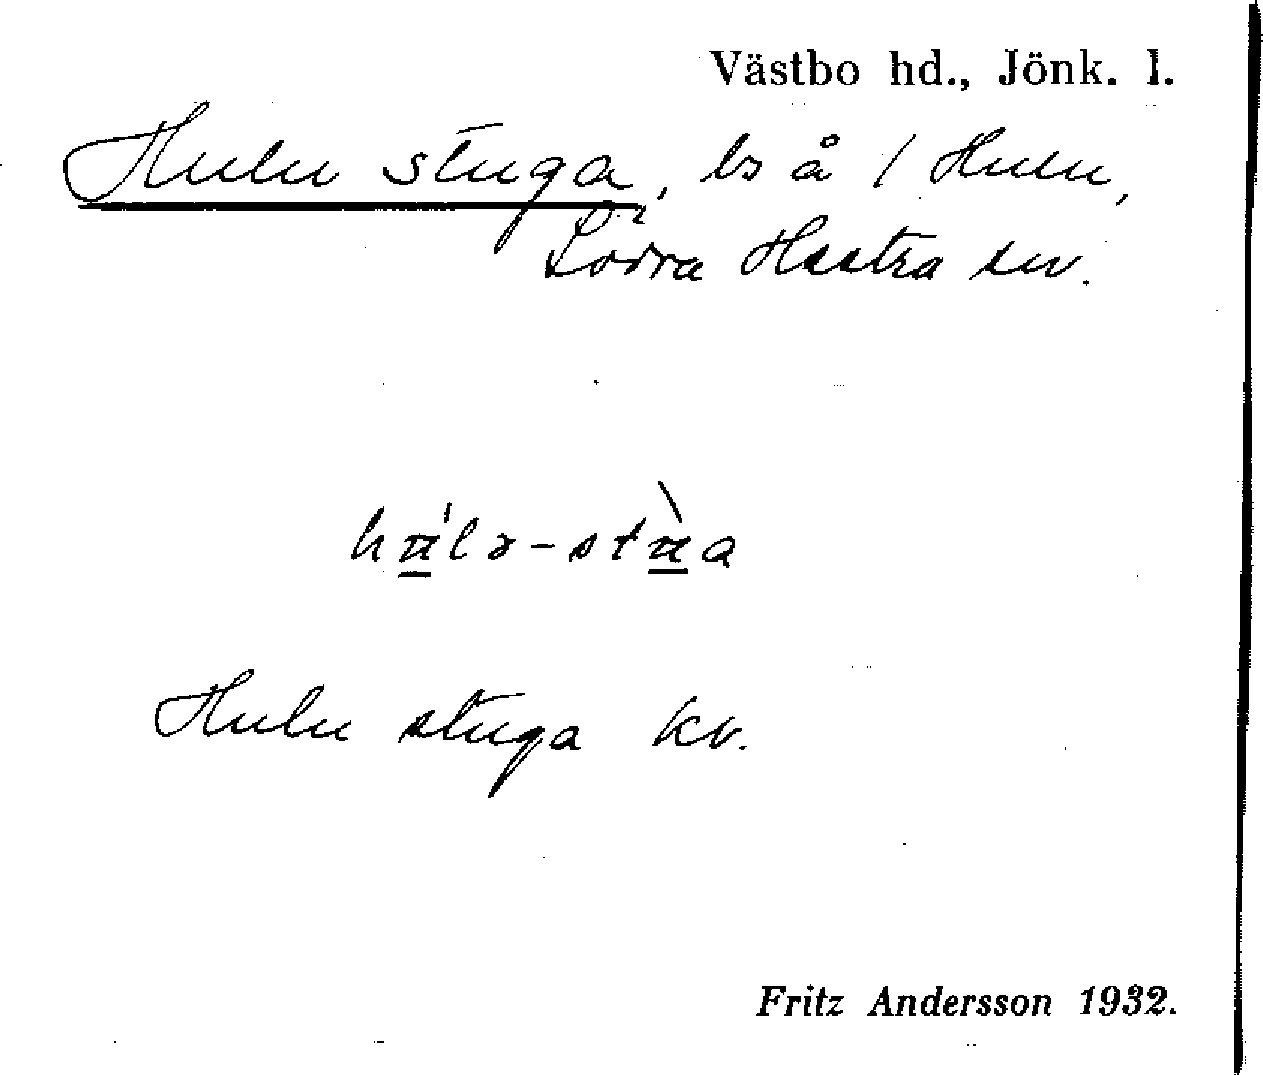 Västbo hd., Jönk. l.
Hulu stuga, ls å / Hulu,
Södra Hestra sn.
Hulu stuga kv.
Fritz Andersson 1932.